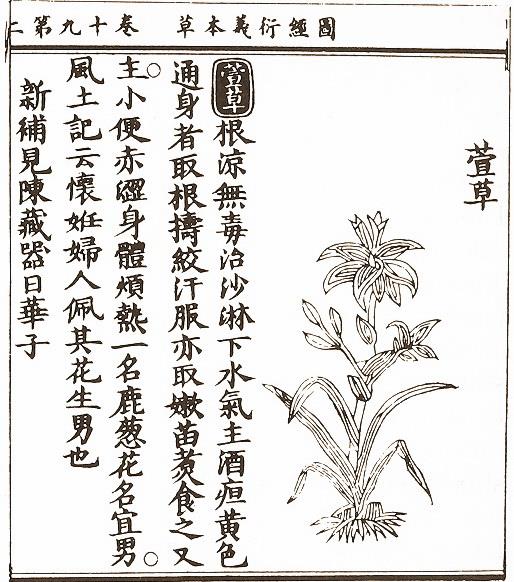 圖經衍義本草 卷十九第二
萱草
萱草根涼無毒治沙淋下水氣主酒疸黃色
通身者取根擣絞汁服亦取嫩苗煑食之又
主小便赤澀身體煩熱一名鹿葱花名宜男
風土記云懷姙婦人佩其花生男也
新補見陳藏器日華子